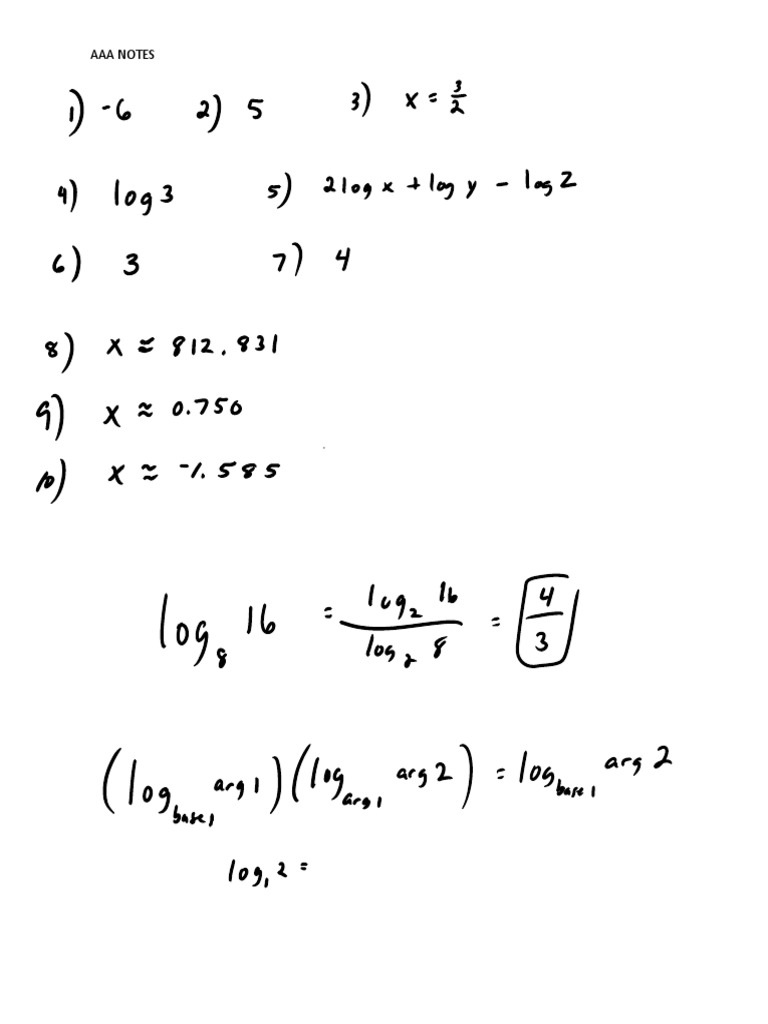 AAA NOTES
1) -6 2) 5 3) x = 3/2
4) log 3 5) 2 log x + log y - log Z
6) 3 7) 4
8) x ≈ 812.831
9) x ≈ 0.750
10) x ≈ -1.585
log₈ 16 = log₂ 16 / log₂ 8 = 4/3
(log_base1 arg 1)(log_arg1 arg 2) = log_base1 arg 2
log₁ 2 =